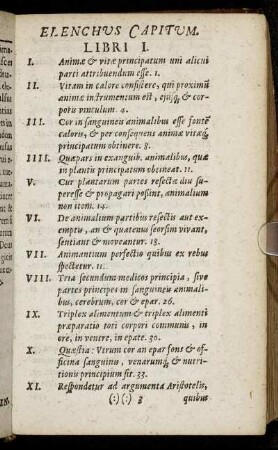 ELENCHVS CAPITVM.
LIBRI I.
I. Animæ & vitæ principatum uni alicui
parti attribuendum esse. 1.
II. Vitam in calore consistere, qui proximũ
animæ instrumentum est, ejusq́, & cor-
poris vinculum. 4.
III. Cor in sanguineis animalibus esse fontẽ
caloris, & per consequens animæ vitæq́,
principatum obtinere. 8.
IIII. Quæpars in exanguib. animalibus, quæ
in plantis principatum obtineat. 11.
V. Cur plantarum partes resectæ diu su-
peresse & propagari possint, animalium
non item. 14.
VI. De animalium partibus resectis aut ex-
emptis, an & quatenus seorsim vivant,
sentiant & moveantur. 18.
VII. Animantium perfectio quibus ex rebus
spectetur. 11.
VIII. Tria secundum medicos principia, sive
partes principes in sanguineis animali-
bus, cerebrum, cor & epar. 26.
IX. Triplex alimentum & triplex alimenti
præparatio toti corpori communis, in
ore, in ventre, in epate. 30.
X. Quæstia: Vtrum cor an epar fons & of-
ficina sanguinis, venarumq́, & nutri-
tionis principium sit. 33.
XI. Respondetur ad argumenta Aristotelis,
(:) (:) 3 quibus